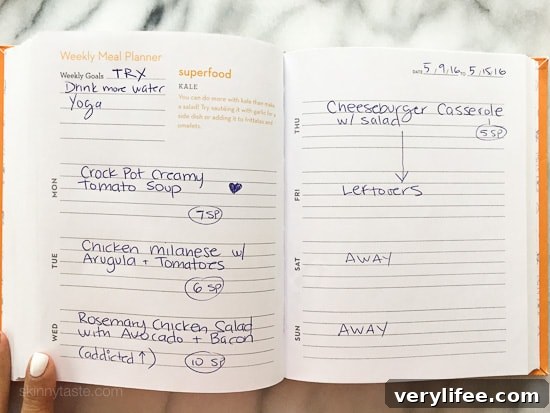 Weekly Meal Planner
Weekly Goals TRY
Drink more water
Yoga
superfood
KALE
You can do more with kale than make
a salad! Try sautéing it with garlic for a
side dish or adding it to frittatas and
omelets.
MON
Crock Pot Creamy
Tomato Soup ♥
7 SP
TUE
Chicken milanese w/
Arugula + Tomatoes
6 SP
WED
Rosemary Chicken Salad
with Avocado + Bacon
(addicted ↑) 10 SP
DATE 5/9/16 TO 5/15/16
THU
Cheeseburger Casserole
w/ salad
5 SP
FRI
Leftovers
SAT
AWAY
SUN
AWAY
skinnytaste.com
verylifee.com